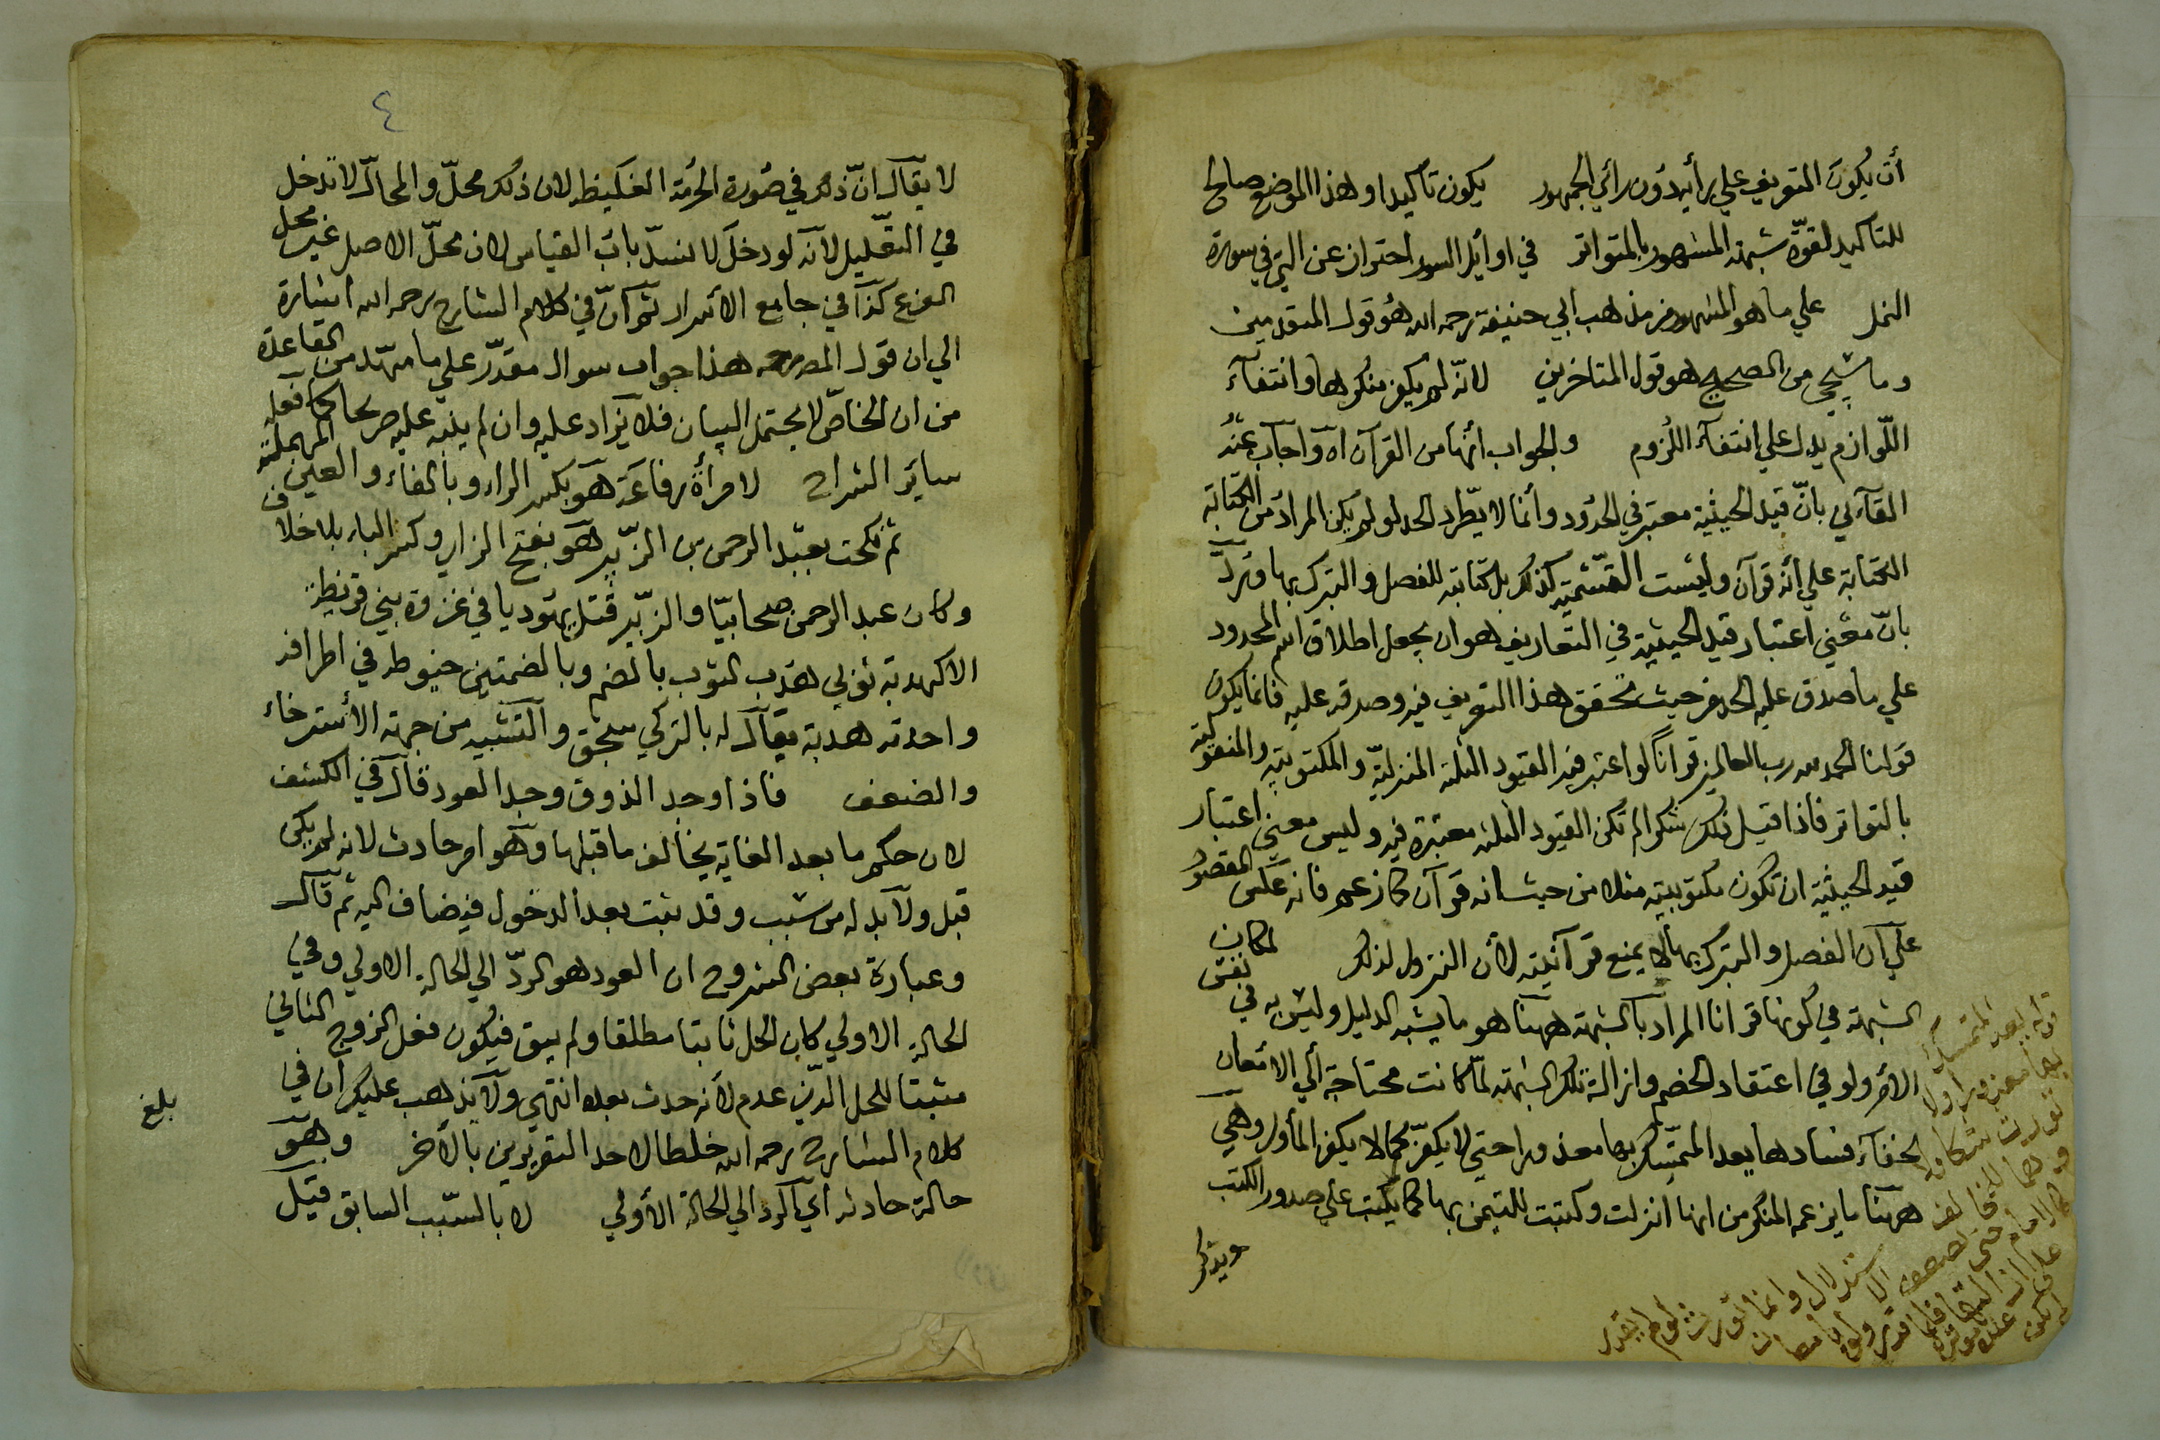 أن يكون التعريف علي رأيه دون رأي الجمهور يكون تأكيدا وهذا الموضع صالح
للتاكيد لقوّة شبهة المشهور بالمتواتر في اوايل السور احتراز عن التي في سورة
النمل علي ما هو المشهور من مذهب ابي حنيفة رحمه الله هو قول المتقدمين
وما سيجي من الصحيح هو قول المتاخرين لانّه لم يكفر منكرها وانتفآء
اللّوازم يدل علي انتفآء اللزوم والجواب أنها من القرآن اه واجاب عنه
القآءني بانّ قيد الحيثية معتبر في الحدود وأنما لا يطّرد الحد لو لم يكن المراد من الكتابة
الكتابة علي أنه قرآن وليست التّسمية كذلك بل كتابته للفصل والتبرك بها ويردّ
بانّ معني اعتبار قيد الحيثية في التعاريف هو ان يجعل اطلاق اسم المحدود
علي ما صدق عليه الحد من حيث تحقق هذا التعريف فيه وصدقه عليه فانما يكون
قولنا الحمد لله رب العالمين قرآناً لو اعتبر فيه القيود الثلثة المنزليّة والمكتوبية والمنقولية
بالتواتر فاذا قيل ذلك شكرا لم تكن القيود الثلثة معتبرة فيه وليس معني اعتبار
قيد الحيثية ان تكون مكتوبيته مثلا من حيث انه قرآن كما زعم فانه عكس المقصود
علي أن الفصل والتبرك بها لا يمنع قرآنيته لأن النزول لذلك لمكان
الشبهة في كونها قرانا المراد بالشبهة ههنا هو ما يشبه الدليل وليس به في نفس
الأمر ولو في اعتقاد الخصم وازالة تلك الشبهة لمّا كانت محتاجة الي الامعان
لخفآء فسادها يعد المتمسّك بها معذورا حتي لا يكفّر كما لا يكفر المأول وهي
ههنا ما يزعمه المنكر من انها انزلت وكتبت للتيمن بها كما يكتب علي صدور الكتب
ويذكر
قوله يعد المتمسك
بها معذورا اولا
٤
لا يقال انّ ذلك في صُورة الحرمة الغليظة لان ذلك محلّ والمحال لا تدخل
في التعليل لأنه لو دخل لانسدّ باب القياس لان محلّ الاصل غير محل
الفرع كذا في جامع الأسرار ثم انّ في كلام الشارح رحمه الله اشارة
الي ان قول المص رحمه هذا جواب سوال مقدّر علي ما مهّد من القاعدة
من ان الخاصّ لا يحتمل البيان فلا يزاد عليه وان لم ينبه عليه صريحا كما فعله
ساير الشراح لامرأة رفاعة هو بكسر الراء وبالفاء والعين المهملة
ثم نكحت بعبد الرحمن بن الزّبير هو بفتح الزاي وكسر الباء بلا خلاف
وكان عبد الرحمن صحابيّا والزّبير قتل يهوديا في غزوة بني قريظة
الا كهدبة ثوبي هدب الثوب بالضم وبالضمتين خيوطه في اطرافه
واحدته هدبة يقال له بالتركي سجق والتشبيه من جهة الأسترخاء
والضعف فاذا وجد الذوق وجد العود قال في الكشف
لان حكم ما بعد الغاية يخالف ما قبلها وهو امر حادث لانه لم يكن
قبل ولا بد له من سبب وقد ثبت بعد الدخول فيضاف اليه ثم قال
وعبارة بعض الشروح ان العود هو الردّ الي الحالة الاولي وفي
الحالة الاولي كان الحل ثابتا مطلقا ولم يبق فيكون فعل الزوج الثاني
مثبتا للحل الذي عدم لأنه حدث بعده انتهي ولا يذهب عليك أن في
كلام الشارح رحمه الله خلطا لاحد التقريرين بالأخر وهو
حالة حادثة اي الرد الي الحالة الأولي لا بالسّبب السابق قيل
بلغ